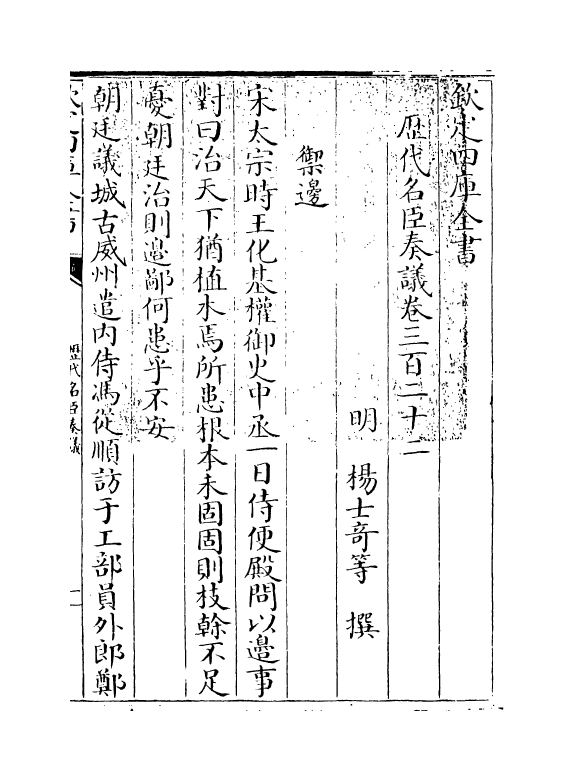 欽定四庫全書
歴代名臣奏議卷三百二十二
明 楊士竒等 撰
禦邊
宋太宗時王化基權御史中丞一日侍便殿問以邊事
對曰治天下猶植木焉所患根本未固固則枝榦不足
憂朝廷治則邊鄙何患乎不安
朝廷議城古威州遣内侍馮從順訪于工部員外郎鄭
歴代名臣奏議